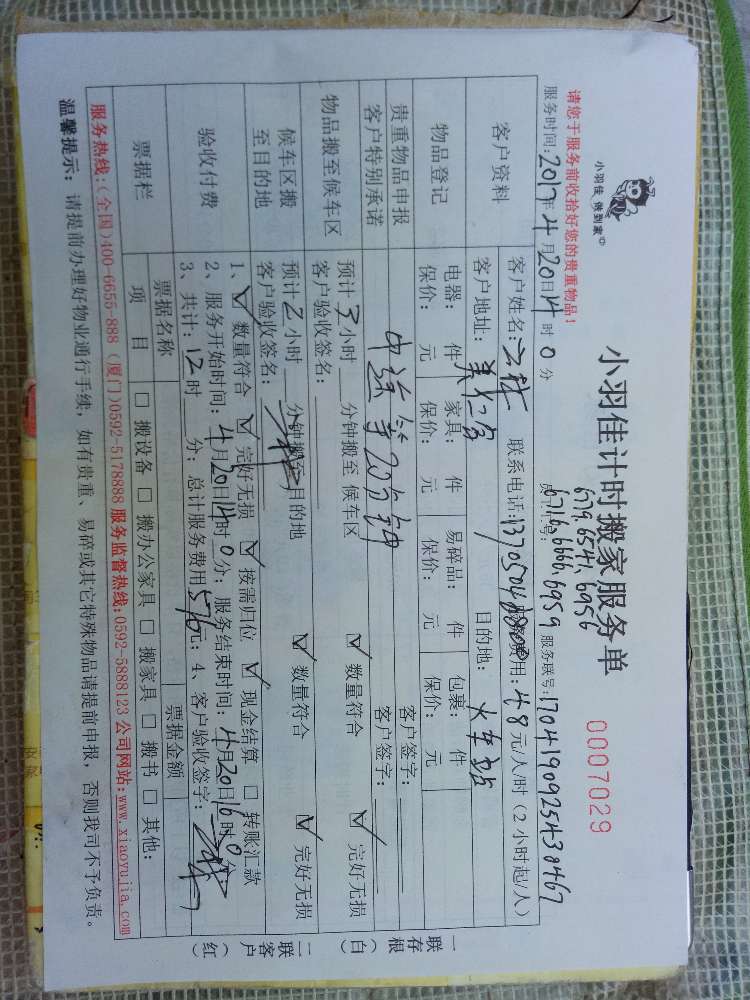 小羽佳 做到家©
小羽佳计时搬家服务单
0007029
请您于服务前收拾好您的贵重物品!
679, 6541, 6956
6716, 6666, 6959
服务时间:2017年4月20日14时0分 服务联号:170419092543 0467
客户资料
客户姓名: 联系电话: 费用:48元/人/时(2小时起/人)
客户地址: 目的地:火车站
物品登记
电器: 件 家具: 件 易碎品: 件 包裹: 件
保价: 元 保价: 元 保价: 元 保价: 元
贵重物品申报
客户特别承诺
中途等20分钟
客户签字:
客户签字:
物品搬至候车区
预计3小时 分钟搬至 候车区 ✓数量符合 ✓完好无损
客户验收签名:
候车区搬
至目的地
预计2小时 分钟搬至目的地 ✓数量符合 ✓完好无损
客户验收签名:
验收付费
1、✓数量符合 ✓完好无损 ✓按需归位 ✓现金结算 □转账汇款
2、服务开始时间:4月20日14时0分;服务结束时间:4月20日16时0分
3、共计:12时 分;总计服务费用576元;4、客户验收签字:
票据栏
票据名称 票据金额
项 目 □搬设备 □搬办公家具 □搬家具 □搬书 □其他:
服务热线:(全国)400-6655-888 (厦门)0592-5178888 服务监督热线:0592-5888123 公司网站:www.xiaoyujia.com
温馨提示:请提前办理好物业通行手续,如有贵重、易碎或其它特殊物品请提前申报,否则我司不予负责。
一联存根(白)
二联客户(红)